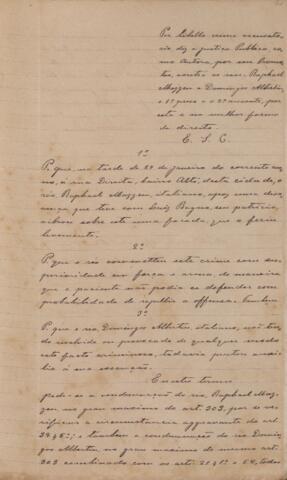 Por Libello crime accusato-
rio diz a Justiça Publica, co-
mo Autora, por seu Promo-
tor, contra os reos, Raphael
Mazzeo e Domingos Albertin,
o 1º preso e o 2º ausente, por
esta e na melhor forma
de direito.
E. S. C.
1º
P. que, na tarde de 29 de janeiro do corrente an-
no, á rua Direita, bairro Alto, desta cidade, o
réo Raphael Mazzeo, italiano, após uma desa-
vença que teve com Luiz Bagno, seu patricio,
vibrou sobre este uma facada, que o feriu
levemente.
2º
P. que o réo commetteu este crime com su-
perioridade em força e arma, de maneira
que o paciente não podia se defender com
probabilidade de repellir a offensa.
3º
P. que o réo, Domingos Albertin, italiano, não ten-
do resolvido ou provocado de qualquer modo
este facto criminoso, todavia prestou auxi-
lio á sua execução.
Nestes termos
pede-se a condemnação do réo, Raphael Maz-
zeo no grau maximo do art. 303, por se ve-
rificar a circumstancia aggravante do art.
39 § 5º; e tambem a condemnação do réo Domin-
gos Albertin, no grau maximo do mesmo art.
303 combinado com os art. 21 § 1º e 64, todos